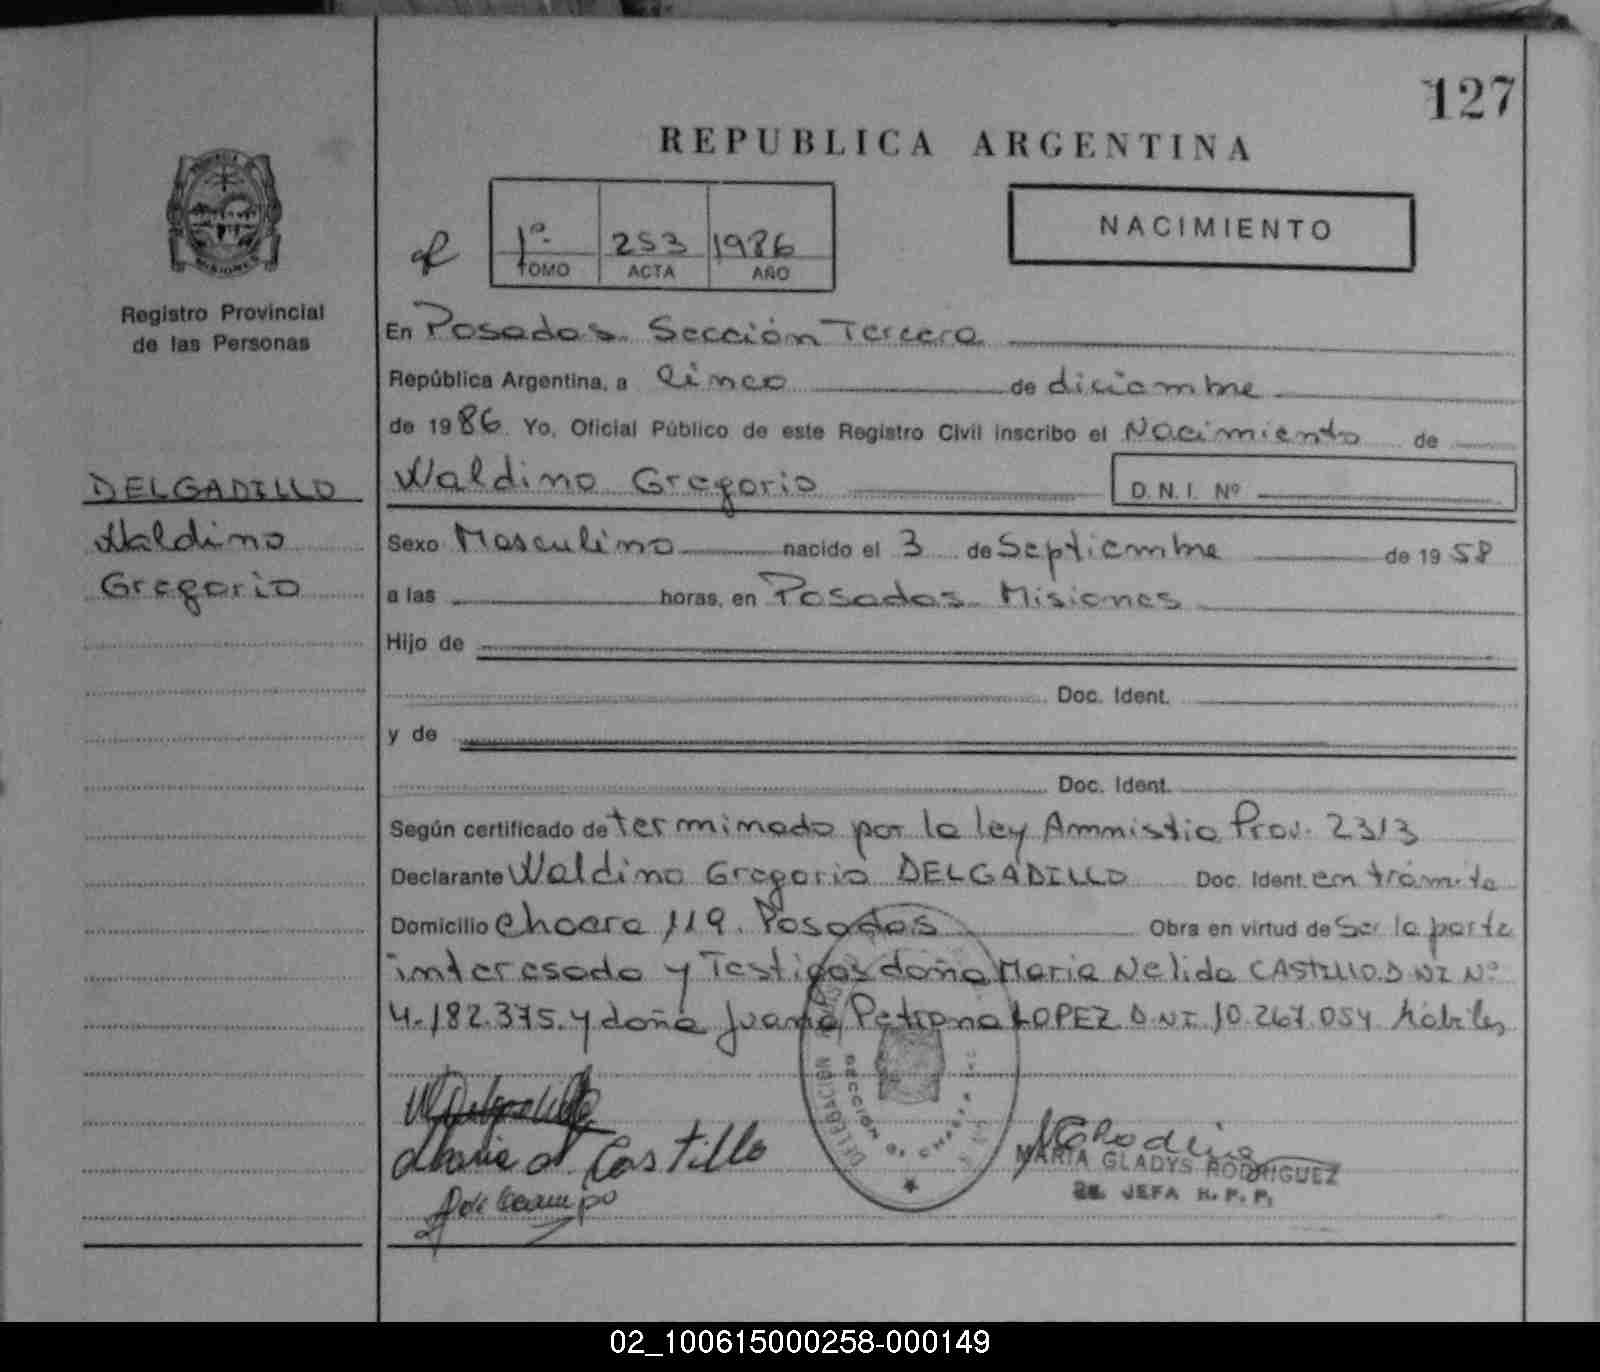 127
REPUBLICA ARGENTINA
1º 253 1986
TOMO ACTA AÑO
NACIMIENTO
MISIONES
Registro Provincial
de las Personas
DELGADILLO
Waldino
Gregorio
En Posadas Sección Tercera
República Argentina, a Cinco de diciembre
de 1986. Yo, Oficial Público de este Registro Civil inscribo el Nacimiento de
Waldino Gregorio D. N. I. Nº
Sexo Masculino nacido el 3 de Septiembre de 1958
a las horas, en Posadas Misiones
Hijo de
Doc. Ident.
y de
Doc. Ident.
Según certificado de terminado por la ley Amnistia Prov. 2313
Declarante Waldino Gregorio DELGADILLO Doc. Ident. en trámite
Domicilio Chacra 119. Posadas Obra en virtud de Ser la parte
interesada y Testigos doña Maria Nelida CASTILLO D NI Nº
4.182.375. y doña Juana Petrona LOPEZ D NI 10.267.054 hábiles
DELEGACION SECCION
Maria N. Castillo
de Ocampo
MARIA GLADYS RODRIGUEZ
JEFA R. P. P.
02_100615000258-000149